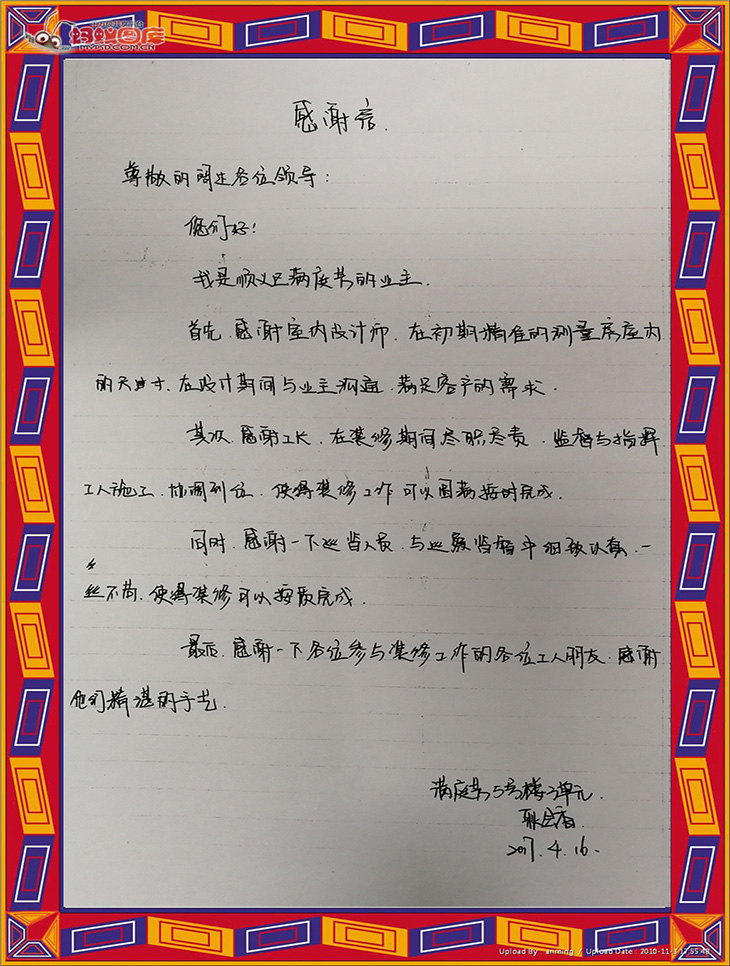 蚂蚁图库
MYPSD.COM.CN
感谢信.
尊敬的阔达各位领导:
您们好!
我是顺义区满庭芳的业主.
首先.感谢室内设计师.在初期精准的测量房屋内
的尺寸.在设计期间与业主沟通.满足客户的需求.
其次.感谢工长.在装修期间尽职尽责.监督与指挥
工人施工.协调到位.使得装修工作可以圆满按时完成.
同时.感谢一下巡监人员.与巡展监督 细致认真.一
丝不苟.使得装修可以按质完成.
最后.感谢一下各位参与装修工作的各位工人朋友.感谢
他们精湛的手艺.
满庭芳5号楼2单元.
2017.4.16.
Upload By : anming / Upload Date : 2010-11-